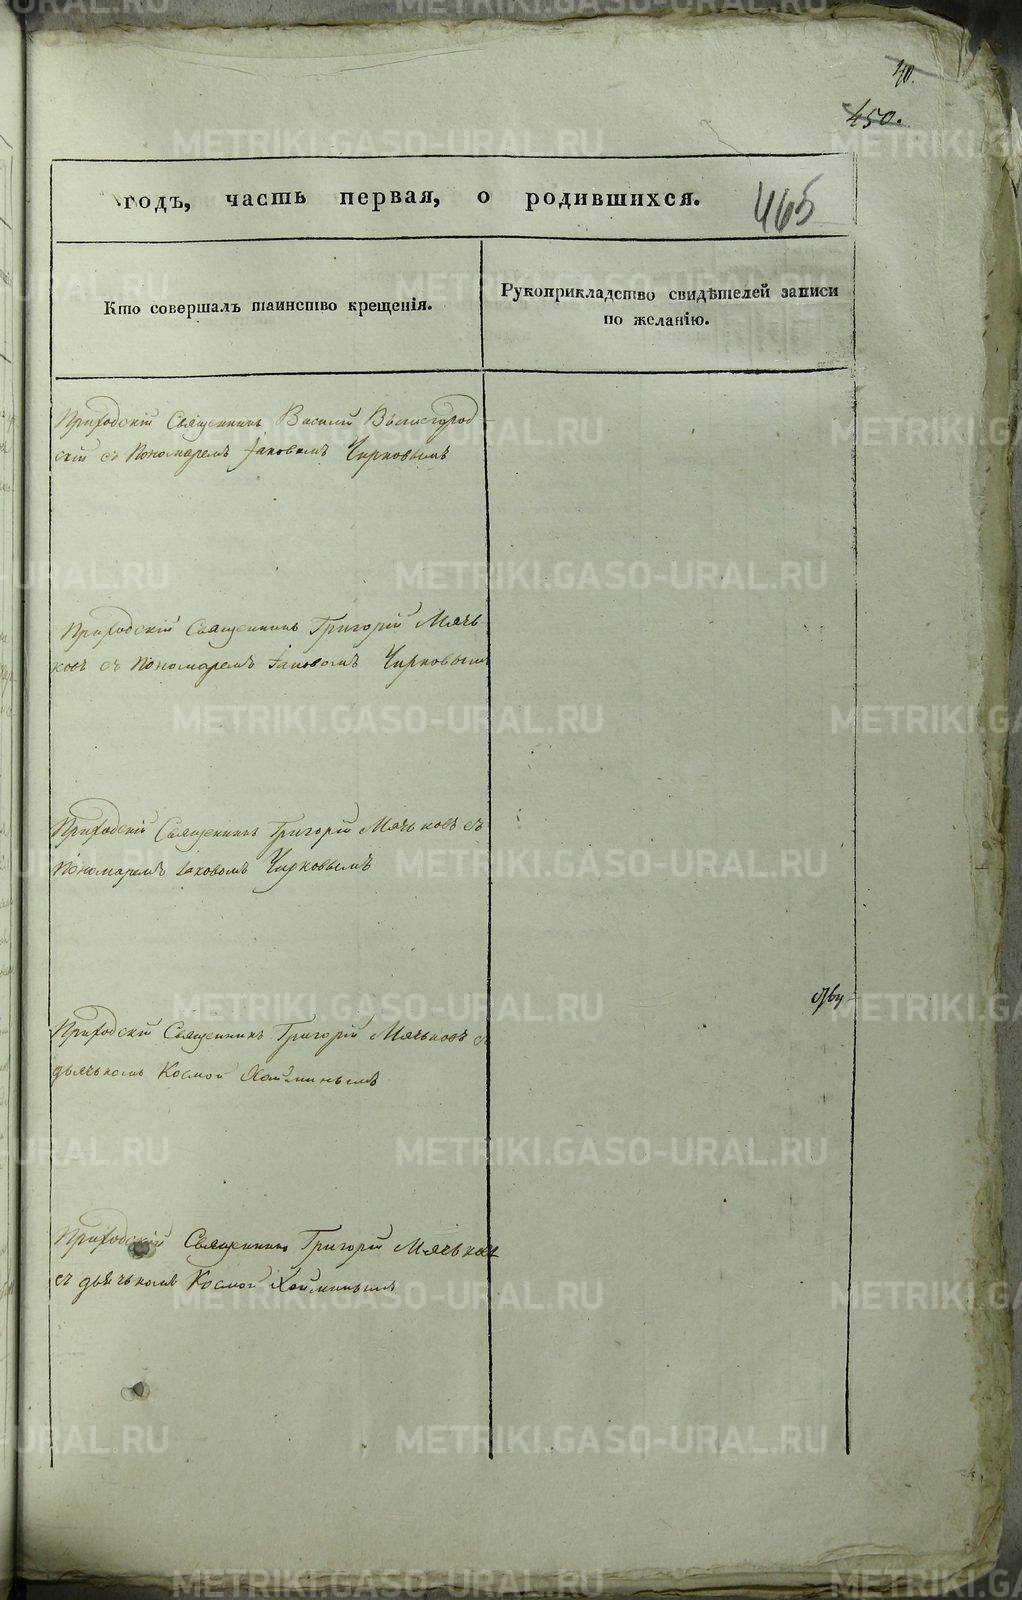 40.
450.
465
годъ, часть первая, о родившихся.
Кто совершалъ таинство крещенія.
Рукоприкладство свидѣтелей записи
по желанію.
Приходскій Священникъ Василій Вышегород-
скій съ Пономаремъ Іаковомъ Чирковымъ
Приходскій Священникъ Григорій Мячь
ковъ съ Пономаремъ Іаковомъ Чирковымъ
Приходскій Священникъ Григорій Мячьковъ съ
Пономаремъ Іаковомъ Чирковымъ
Приходскій Священникъ Григорій Мячьковъ съ
дьячькомъ Космой
Приходскій Священникъ Григорій Мячьковъ
съ дьячькомъ Космой
METRIKI.GASO-URAL.RU